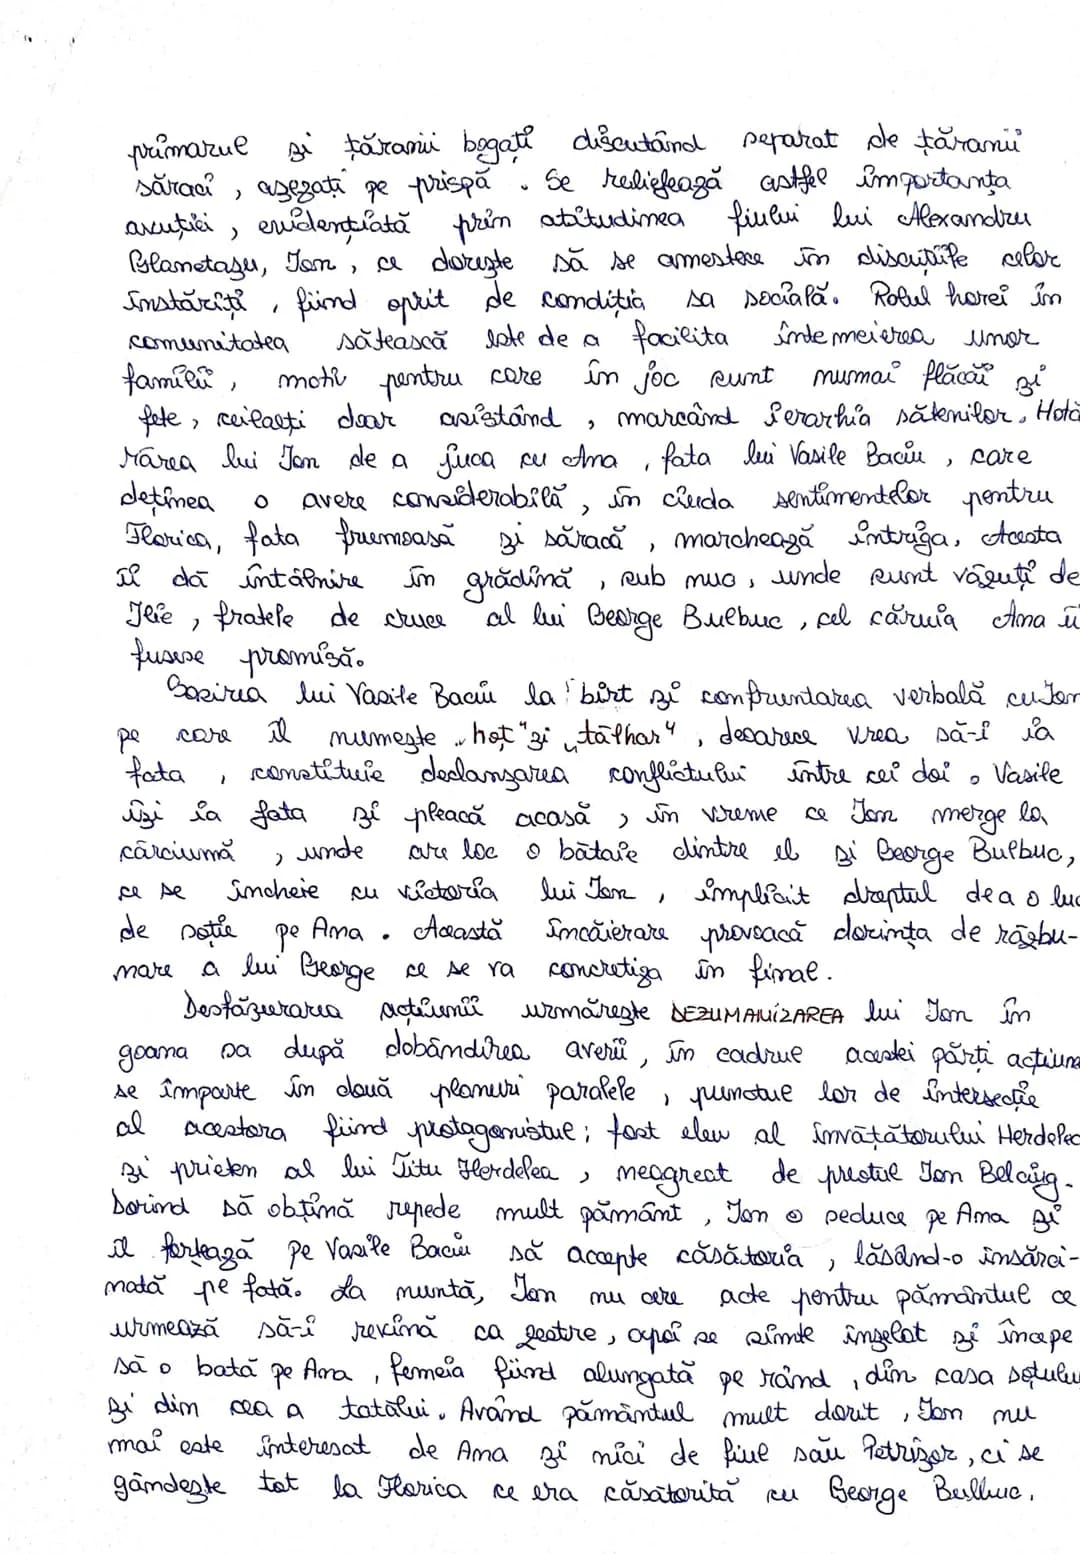 primarul și țăranii bogați discutând separat de țăranii
săraci, așezați pe prispă. Se reliefează astfel importanța
avuției, evidențiată prin atitudinea fiului lui Alexandru
Glanetașu, Ion, ce dorește să se amestece în discuțiile celor
înstăriți, fiind oprit de condiția sa socială. Rolul horei în
comunitatea sătească este de a facilita întemeierea unor
familii, motiv pentru care în joc sunt numai flăcăi și
fete, ceilalți doar asistând, marcând ierarhia sătenilor. Hotă
rârea lui Ion de a juca cu Ana, fata lui Vasile Baciu, care
deținea o avere considerabilă, în ciuda sentimentelor pentru
Florica, fata frumoasă și săracă, marchează intriga. Acesta
îi dă întâlnire în grădină, sub nuc, unde sunt văzuți de
Ilie, fratele de cruce al lui George Bulbuc, cel căruia Ana îi
fusese promisă.
Sosirea lui Vasile Baciu la birt și confruntarea verbală cu Ion
pe care îl numește „hoț" și „tâlhar", deoarece vrea să-i ia
fata, constituie declanșarea conflictului între cei doi. Vasile
își ia fata și pleacă acasă, în vreme ce Ion merge la
cârciumă, unde are loc o bătaie dintre el și George Bulbuc,
ce se încheie cu victoria lui Ion, implicit dreptul de a o lua
de soție pe Ana. Această încăierare provoacă dorința de răzbu-
nare a lui George ce se va concretiza în final.
Desfășurarea acțiunii urmărește DEZUMANIZAREA lui Ion în
goana sa după dobândirea averii, în cadrul acestei părți acțiunea
se împarte în două planuri paralele, punctul lor de intersecție
al acestora fiind protagonistul; fost elev al învățătorului Herdelea
și prieten al lui Titu Herdelea, neagreat de preotul Ion Belciug.
Dorind să obțină repede mult pământ, Ion o seduce pe Ana și
îl forțează pe Vasile Baciu să accepte căsătoria, lăsând-o însărci-
nată pe fată. La nuntă, Ion nu cere acte pentru pământul ce
urmează să-i revină ca zestre, apoi se simte înșelat și începe
să o bată pe Ana, femeia fiind alungată pe rând, din casa soțului
și din cea a tatălui. Având pământul mult dorit, Ion nu
mai este interesat de Ana și nici de fiul său Petrișor, ci se
gândește tot la Florica ce era căsătorită cu George Bulbuc.